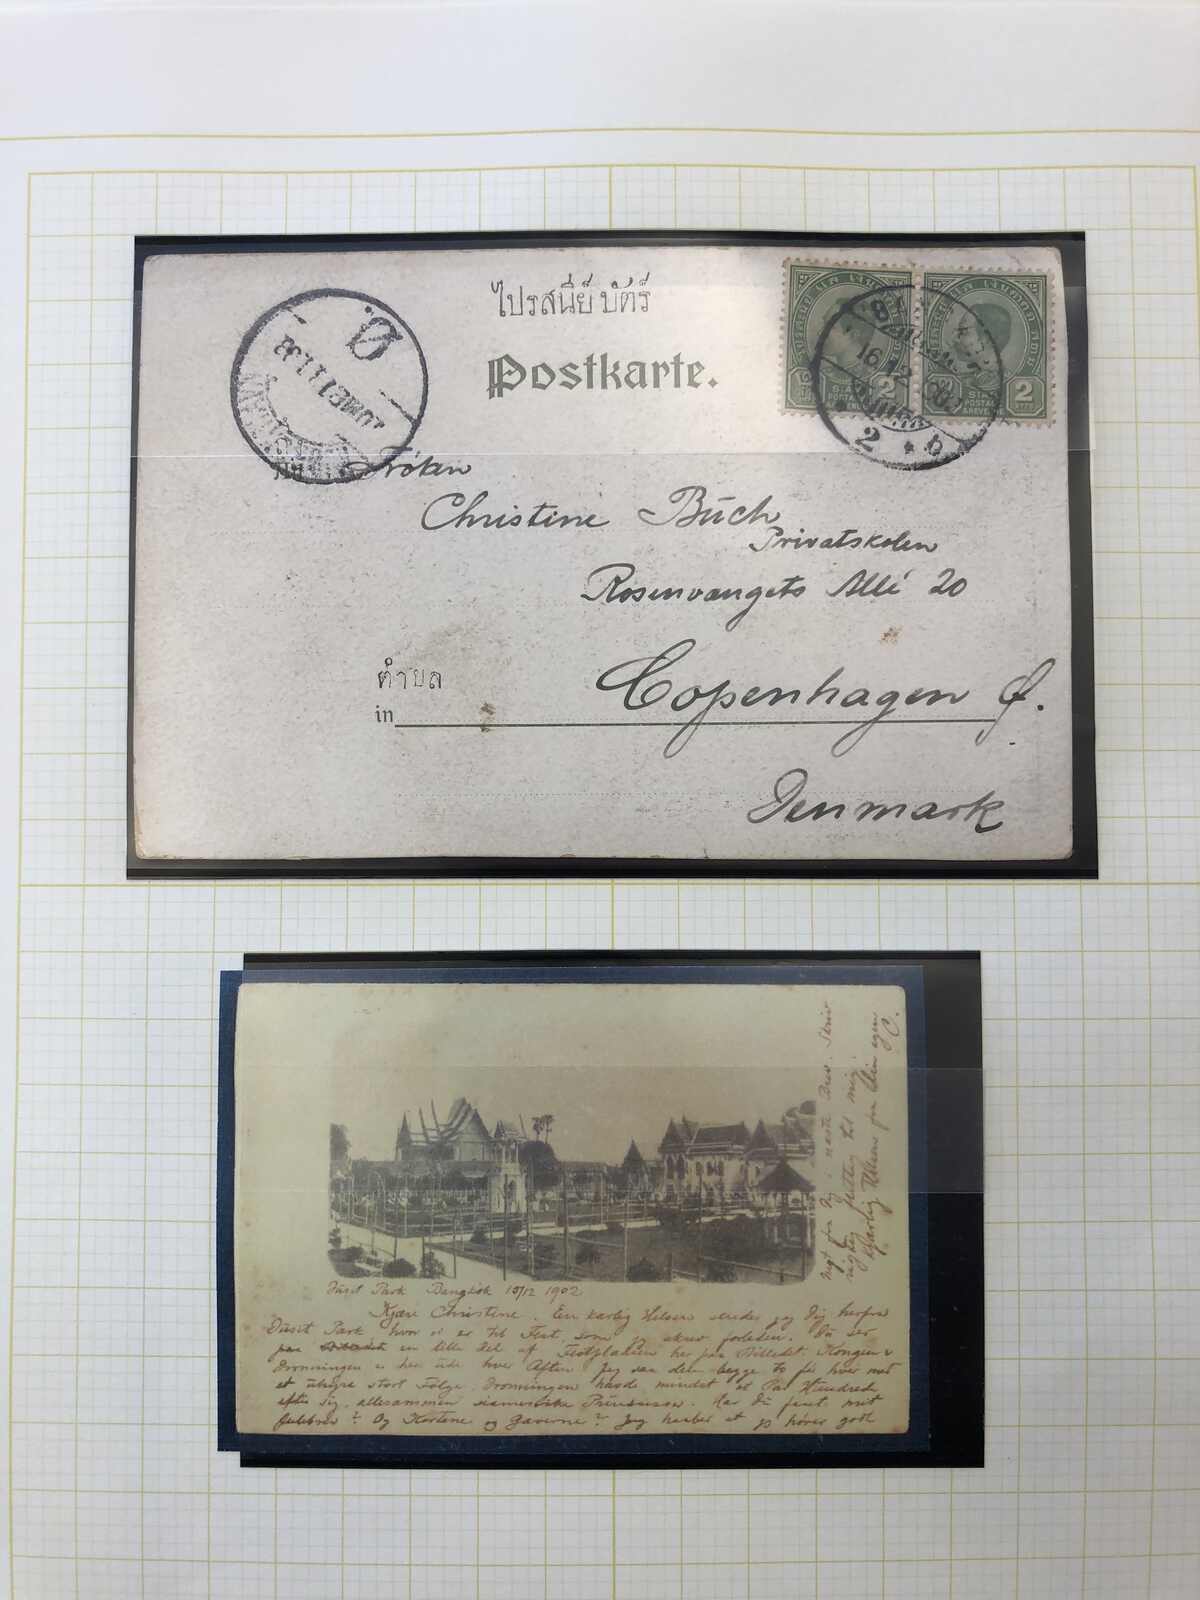 ไปรสนีย์ บัตร์
Postkarte.
2 2
Frøken
Christine Buch
Privatskolen
Rosenvangets Allé 20
ตำบล
in Copenhagen Ø.
Denmark
Dusit Park Bangkok 10/12 1902
Kjære Christine. En kærlig Hilsen sender jeg Dig herfra
Dusit Park hvor vi er til Fest, som jeg skrev forleden. Du ser
paa en lille Del af Festpladsen her paa Billedet. Kongen &
Dronningen er her ude hver Aften. Jeg saa dem begge to før hver med
et uhyre stort Følge. Dronningen havde mindst et Par Hundrede
efter sig, allesammen siamesiske Prinsesser. Har Du faaet mit
Julebrev? Og Kortene og Gaverne? Jeg haaber at jeg hører godt
nyt fra Dig i næste Brev. Skriv
rigtig flittig til mig.
Kærlig Hilsen fra Din egen
C.